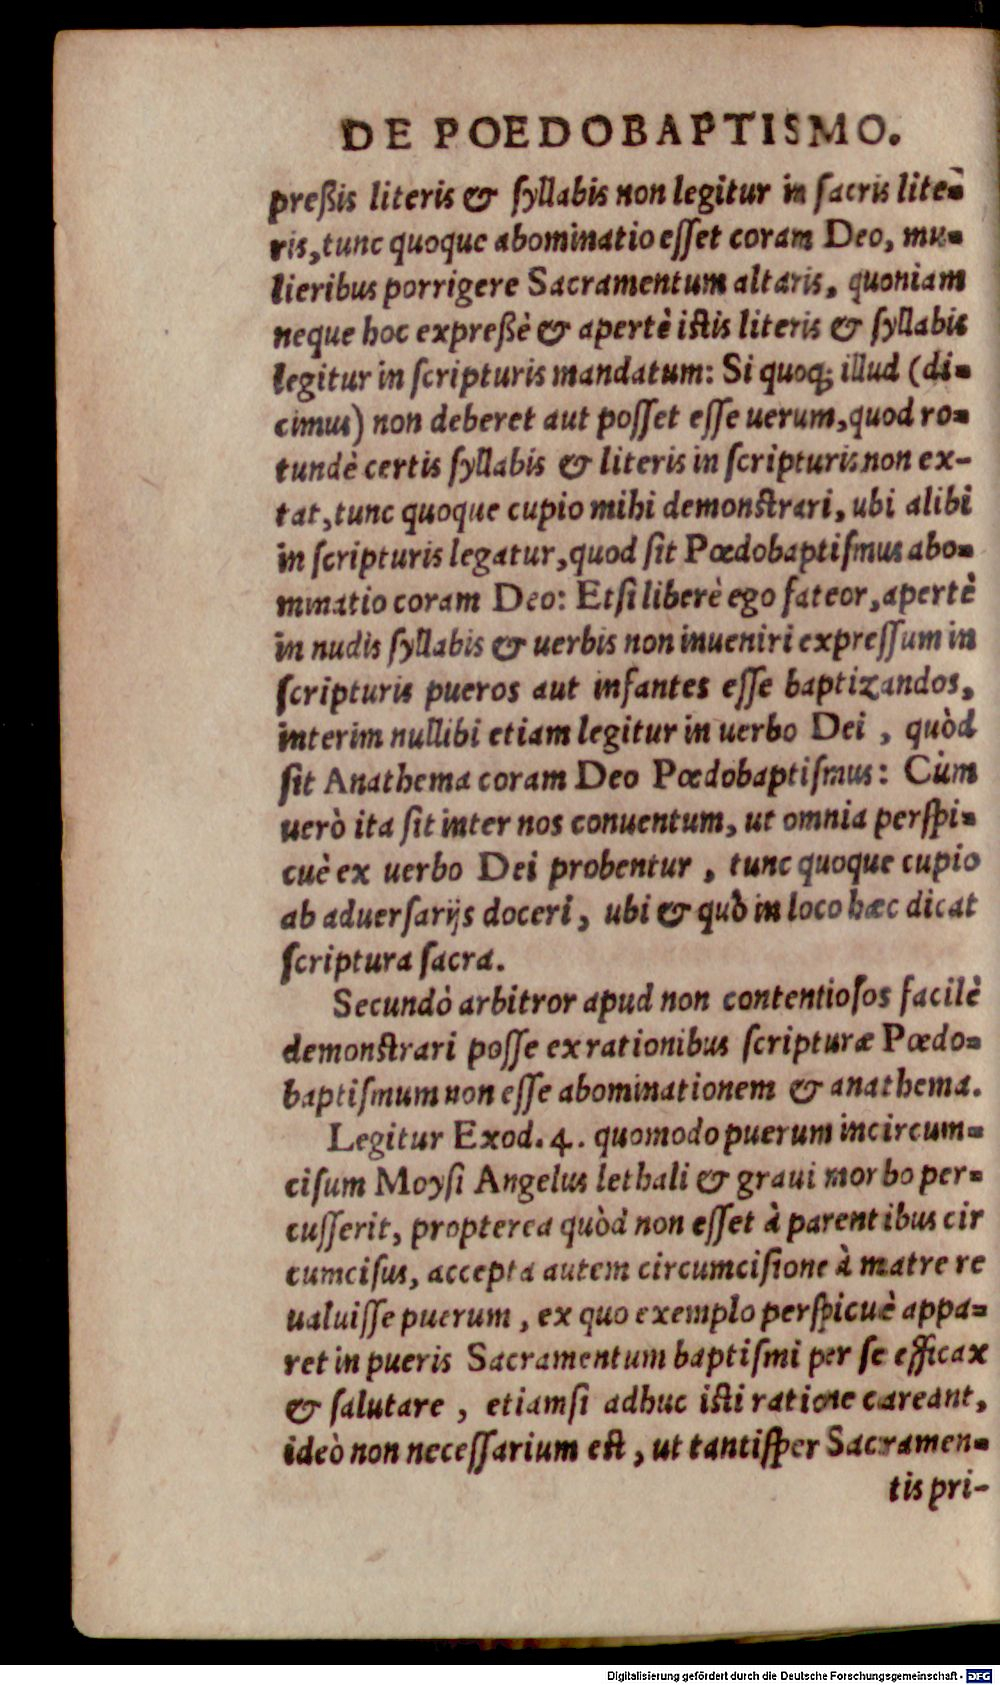 DE POEDOBAPTISMO.
preßis literis & ſyllabis non legitur in ſacris lite=
ris, tunc quoque abominatio eſſet coram Deo, mu=
lieribus porrigere Sacramentum altaris, quoniam
neque hoc expreßè & apertè iſtis literis & ſyllabis
legitur in ſcripturis mandatum: Si quoq; illud (di=
cimus) non deberet aut poſſet eſſe uerum, quod ro=
tundè certis ſyllabis & literis in ſcripturis non ex-
tat, tunc quoque cupio mihi demonſtrari, ubi alibi
in ſcripturis legatur, quod ſit Pœdobaptiſmus abo=
minatio coram Deo: Etſi liberè ego fateor, apertè
in nudis ſyllabis & uerbis non inueniri expreſſum in
ſcripturis pueros aut infantes eſſe baptizandos,
interim nullibi etiam legitur in uerbo Dei, quòd
ſit Anathema coram Deo Pœdobaptiſmus: Cùm
uerò ita ſit inter nos conuentum, ut omnia perſpi=
cuè ex uerbo Dei probentur, tunc quoque cupio
ab aduerſarijs doceri, ubi & quò in loco hæc dicat
ſcriptura ſacra.
Secundò arbitror apud non contentioſos facilè
demonſtrari poſſe ex rationibus ſcripturæ Pœdo=
baptiſmum non eſſe abominationem & anathema.
Legitur Exod. 4. quomodo puerum incircum=
ciſum Moyſi Angelus lethali & graui morbo per=
cuſſerit, propterea quòd non eſſet à parentibus cir
cumciſus, accepta autem circumciſione à matre re
ualuiſſe puerum, ex quo exemplo perſpicuè appa=
ret in pueris Sacramentum baptiſmi per ſe efficax
& ſalutare, etiamſi adhuc iſti ratione careant,
ideò non neceſſarium eſt, ut tantiſper Sacramen=
tis pri-
Digitalisierung gefördert durch die Deutsche Forschungsgemeinschaft - DFG